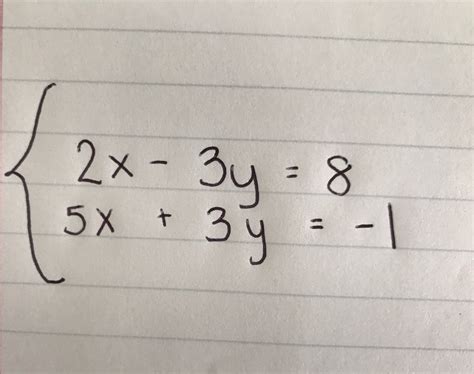 2x - 3y = 8
5x + 3y = -1